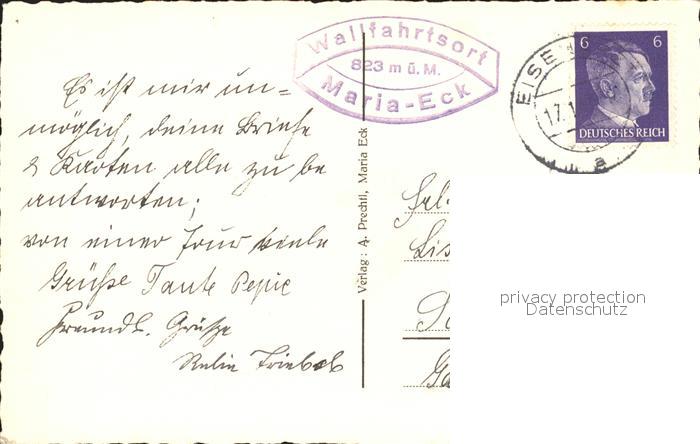 Wallfahrtsort
823 m ü. M.
Maria-Eck
EISE
17.1
a
6 6
DEUTSCHES REICH
Es ist mir un=
möglich, deine Briefe
2 Karten alle zu be
antworten;
von einer Tour viele
Grüße Tante Pepie
Freundl. Grüße
Verlag: A. Prechtl, Maria Eck
Frl.
Lis
privacy protection
Datenschutz